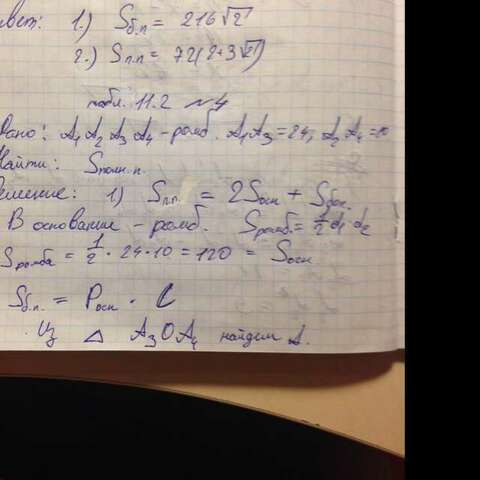 вет: 1.) Sб.п = 216√2
2.) Sп.п = 72(2+3√2)
табл. 11.2 №4
Дано: A₁ A₂ A₃ A₄ - ромб. A₁A₃ = 24, A₂A₄ = 10
Найти: Sполн.п.
ешение: 1) Sп.п. = 2Sосн + Sбок.
В основание - ромб. Sромб = 1/2 d₁·d₂
Sромба = 1/2 · 24 · 10 = 120 = Sосн
Sб.п. = Pосн · L
Из △ A₃OA₄ найдем A.